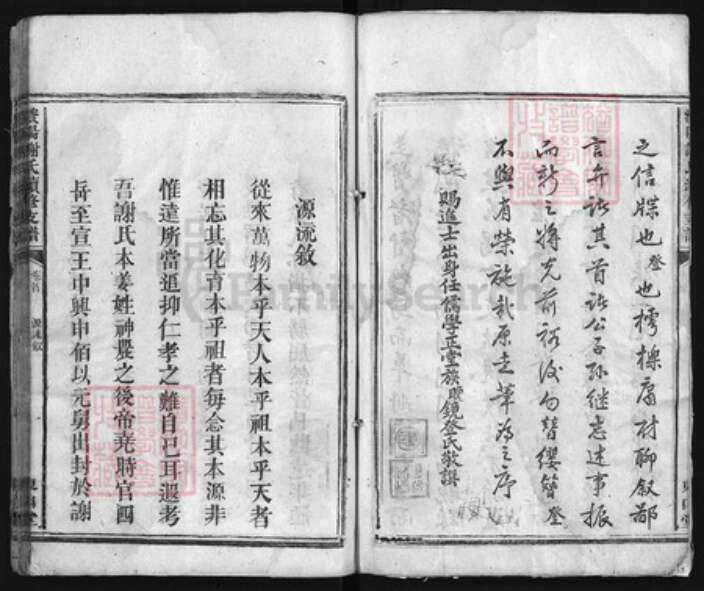 之信牒也登也樗櫟庸材聊叙鄙
言弁諸其首諸公子孫继志述事振
而新之将光前裕後勿替纓簪登
不與有荣施哉原走筆為之序
賜進士出身任儒學正堂族 鏡登氏敬撰
源流敘
從來萬物本乎天人本乎祖本乎天者
相忘其化育本乎祖者每念其本源非
惟達所當追抑仁孝之難自已耳遐考
吾謝氏本姜姓神農之後帝堯時官四
岳至宣王中興申伯以元舅出封於謝
謝氏續修支譜
卷首
源流敘
FamilySearch